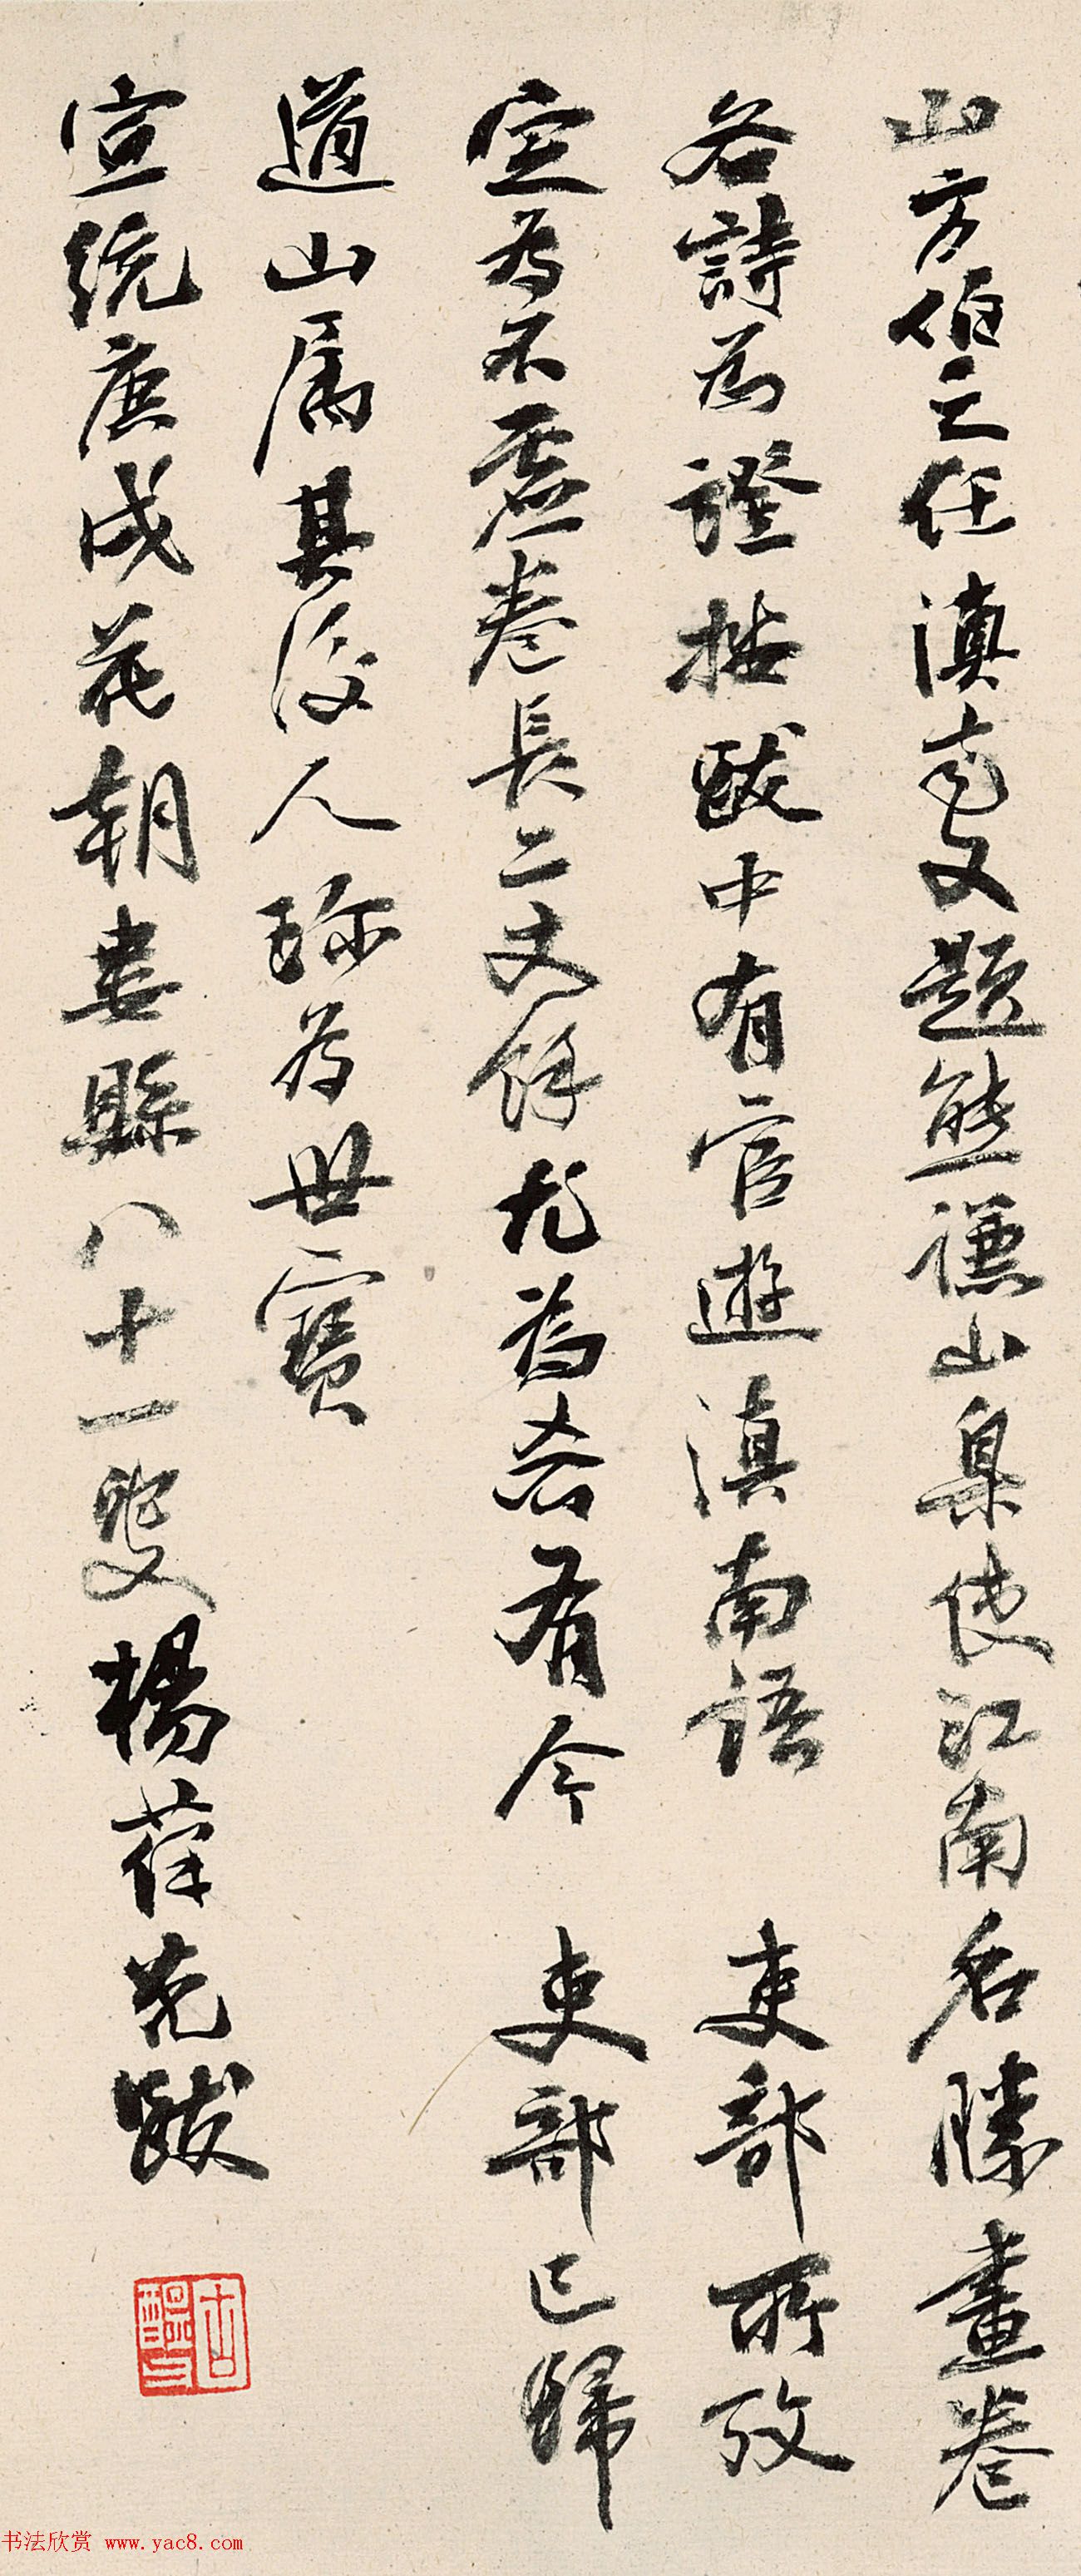 山方伯之任滇南又題熊謙山臬使江南名勝畫卷
各詩為證據跋中有官遊滇南語 吏部所攷
定為不虛卷長二丈餘尤為希有今 吏部已歸
道山属其後人珎為世寶
宣統庚戌花朝婁縣八十一叟楊葆光跋
书法欣赏 www.yac8.com